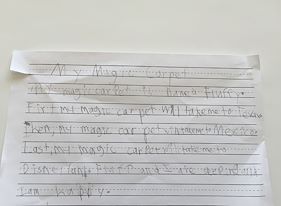 My Magic Carpet
My magic carpet is named Fluffy.
First my magic carpet will take me to Texas
Then, my magic carpet will take me to Mexico.
Last, my magic carpet will take me to
Disneyland. Fluffy and I are
I am happy.